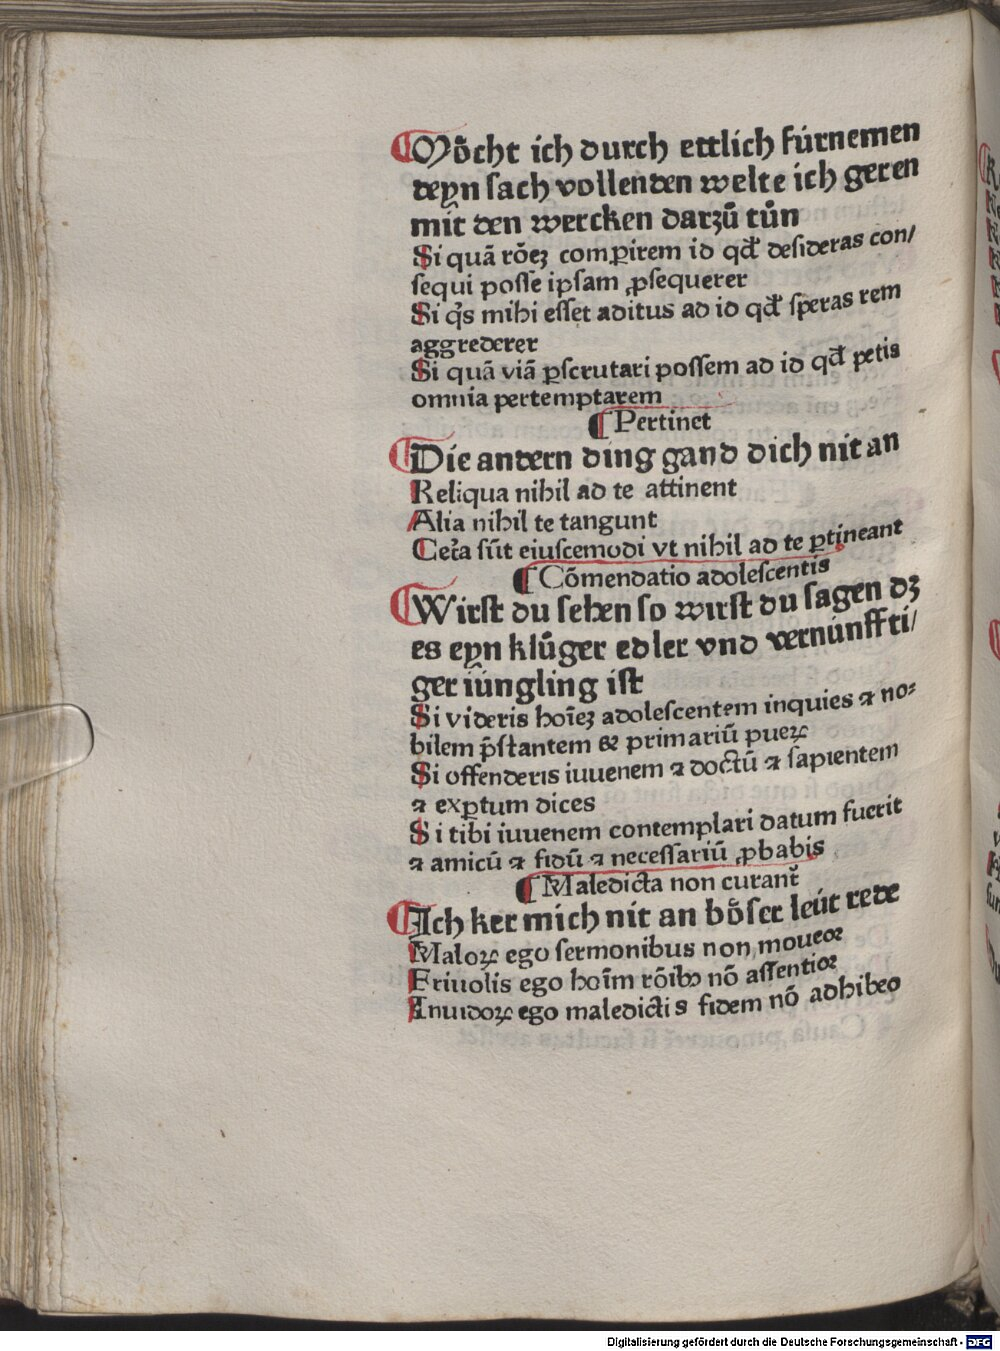 Mo̊cht ich durch ettlich fúrnemen
deyn sach vollenden welte ich geren
mit den wercken darzů tůn
Si quã rõeꝫ comꝑirem id qđ desideras con/
sequi posse ipsam ꝓsequerer
Si q̃s mihi esset aditus ad id qđ speras rem
aggrederer
Si quã viã ꝑscrutari possem ad id qđ petis
omnia pertemptarem
¶ Pertinet
Die andern ding gand dich nit an
Reliqua nihil ad te attinent
Alia nihil te tangunt
Cet̃a sũt eiuscemodi vt nihil ad te ꝑtineant
¶ Cõmendatio adolescentis
Wirst du sehen so wirst du sagen dꝫ
es eyn klůger edler vnd vernúnffti/
ger iúngling ist
Si videris hoĩeꝫ adolescentem inquies ⁊ no⸗
bilem p̃stantem & primariũ pueꝝ
Si offenderis iuuenem ⁊ doctũ ⁊ sapientem
⁊ exꝑtum dices
Si tibi iuuenem contemplari datum fuerit
⁊ amicũ ⁊ fidũ ⁊ necessariũ ꝓbabis
¶ Maledicta non curant᷑
Ich ker mich nit an bo̊ser leút rede
Maloꝝ ego sermonibus non moueor
Friuolis ego hoĩm rõibꝰ nõ assentior
Inuidoꝝ ego maledictis fidem nõ adhibeo
Digitalisierung gefördert durch die Deutsche Forschungsgemeinschaft - DFG